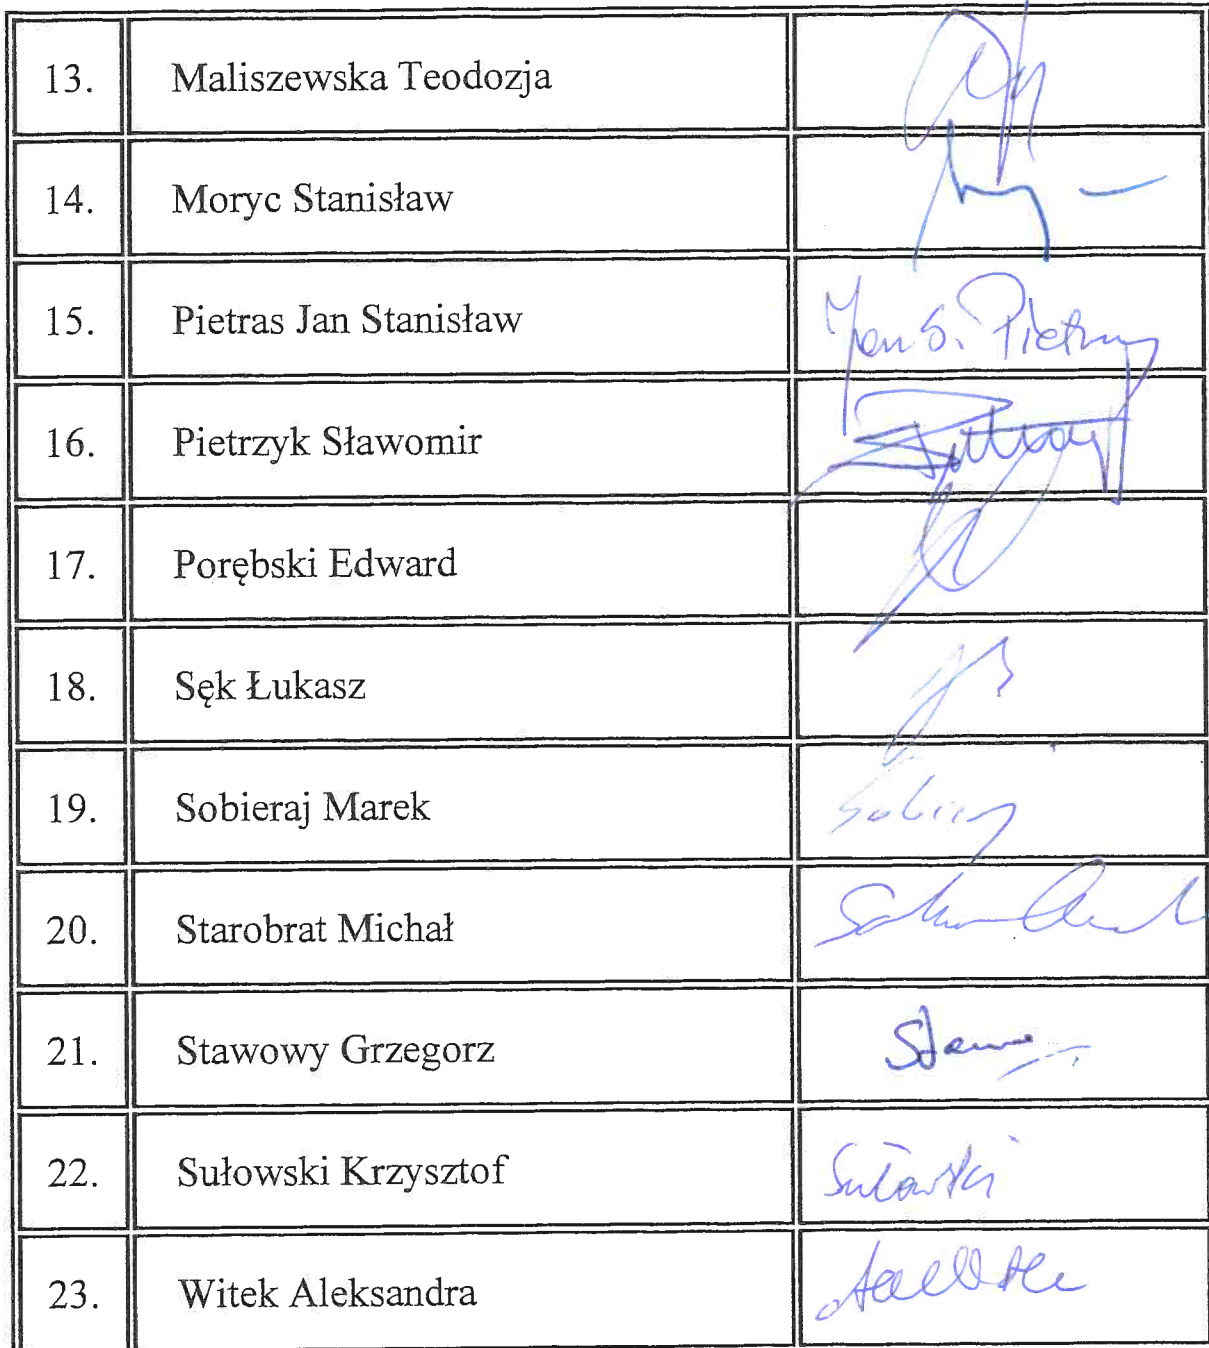 13. Maliszewska Teodozja
14. Moryc Stanisław
15. Pietras Jan Stanisław Jan S. Pietras
16. Pietrzyk Sławomir
17. Porębski Edward
18. Sęk Łukasz
19. Sobieraj Marek
20. Starobrat Michał
21. Stawowy Grzegorz
22. Sułowski Krzysztof Sułowski
23. Witek Aleksandra